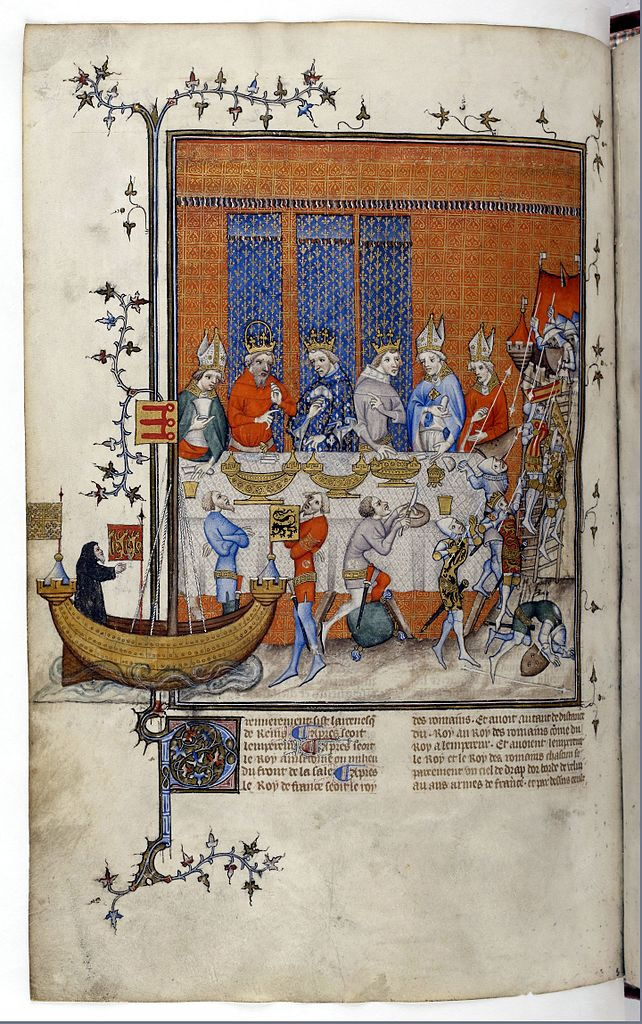 remierement sist larcevesq
de Reins. Apres seoit
lempereur. Apres seoit
le Roy
du front de la sale. Apres
le Roy de france seoit le roy
des romains. Et avoit autant de distance
du Roy au Roy des romains come du
Roy a lempereur. Et avoient lempereur
le Roy et le Roy des romains chascun se
parement un ciel de drap dor borde de veluiau
aus armes de france. et par dessus